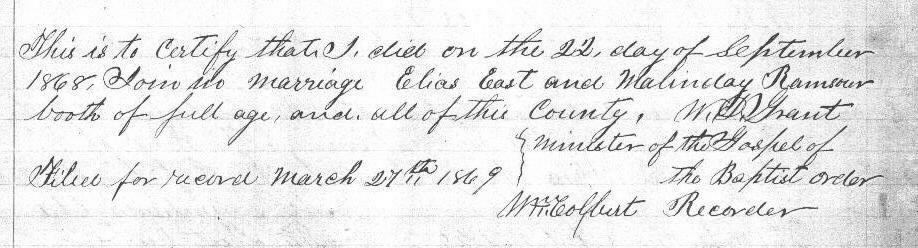 This is to certify that. I. did on the 22, day of September
1868, Join in marriage Elias East and Malinday Ramsour
booth of full age, and. all of this County. W. D. Grant
Minister of the Gospel of
Filed for record March 27th, 1869 the Baptist order
Wm. Colbert Recorder